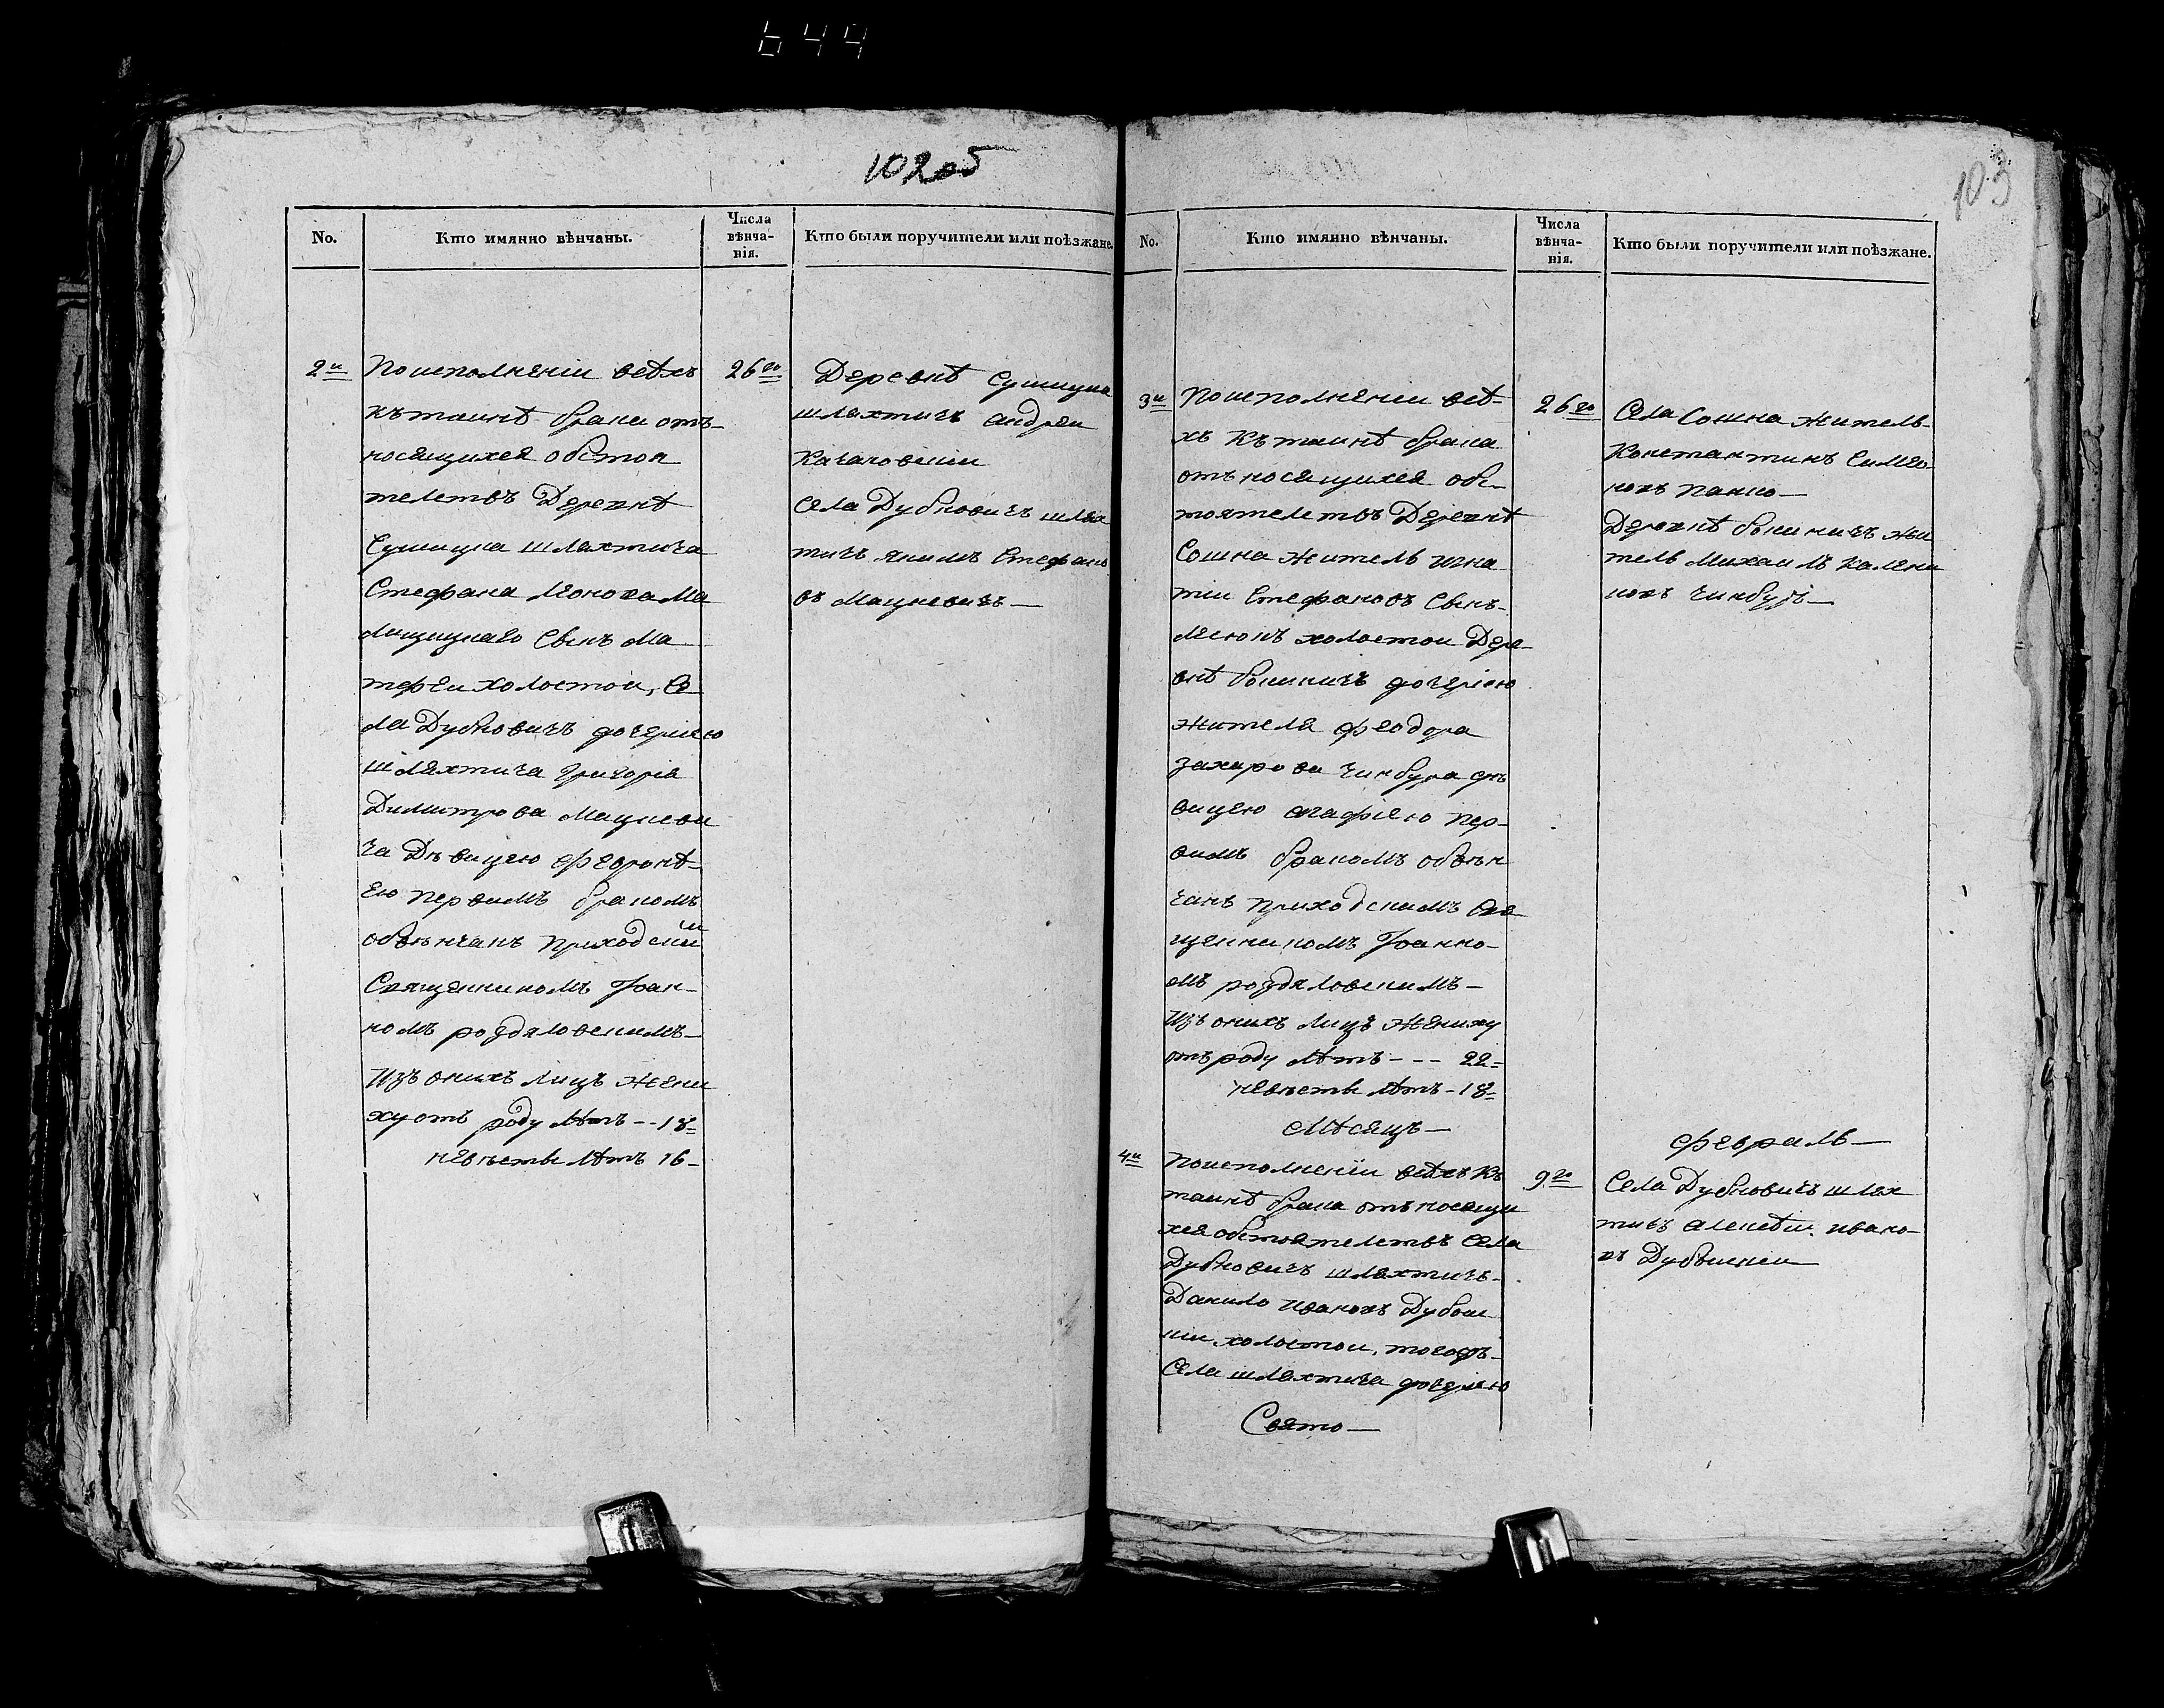 644
102об
No.
Кто имянно вѣнчаны.
Числа
вѣнча-
нія.
Кто были поручители или поѣзжане.
2й
По исполненіи всѣхъ
къ таинѣ брака отъ-
носящихся обстоя
телствъ Деревнѣ
Сушицка шляхтича
Стефана
сынъ Ма
тфеи холостои, Се
ла Дубновичъ дочерию
шляхтича Григорія
Димитрова Мацкеви
ча Дѣвицею Февронѣ-
ею первимъ бракомъ
обвѣнчанъ приходскимъ
Священникомъ Іоан-
номъ роздяловскимъ-
Изъ онихъ лицъ жени
ху отъ роду лѣтъ -- 18-
невѣсты лѣтъ 16-
26го
Деревнѣ Сушицка
шляхтичъ андреи
Качановскіи
Села Дубновичъ шлях
тичъ якимъ Стефано
въ Мацкевичъ —
103
No.
Кто имянно вѣнчаны.
Числа
вѣнча-
нія.
Кто были поручители или поѣзжане.
3й
По исполненіи всѣ-
хъ къ таинѣ брака
отъносящихся обс-
тоятелствъ Деревнѣ
Сошна житель Игна
тіи Стефановъ Сынъ-
холостои Дере-
внѣ бокиничъ дочерію
жителя Феодора
захарова Чинбура дѣ
вицею агафіею пер-
вимъ бракомъ обвѣн
чанъ приходскимъ Свя
щенникомъ Іоанно-
мъ роздяловскимъ-
Изъ онихъ лицъ жениху
отъ роду лѣтъ --- 22-
невѣсты лѣтъ - 18-
26го
Села Сошна житель-
Константинъ Симео-
новъ панко—
Деревнѣ бокиничъ жи
тель Михаилъ
Мѣсяцъ —
Февраль —
4й
По исполненіи всѣхъ къ
таинѣ брака отъносящи
хся обстоятелствъ Села
Дубновичъ шляхтичъ-
Данило Ивановъ Дубови
кіи холостои, тогожъ-
Села шляхтича дочерію
Свято —
9го
Села Дубновичъ шлях
тичъ Алексѣи ивано-
въ